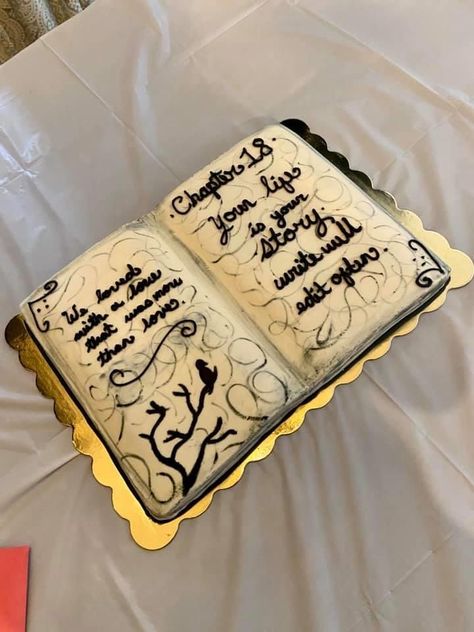 We loved
with a love
that was more
than love.
. Chapter 18.
Your life
is your
Story.
write well
edit often.